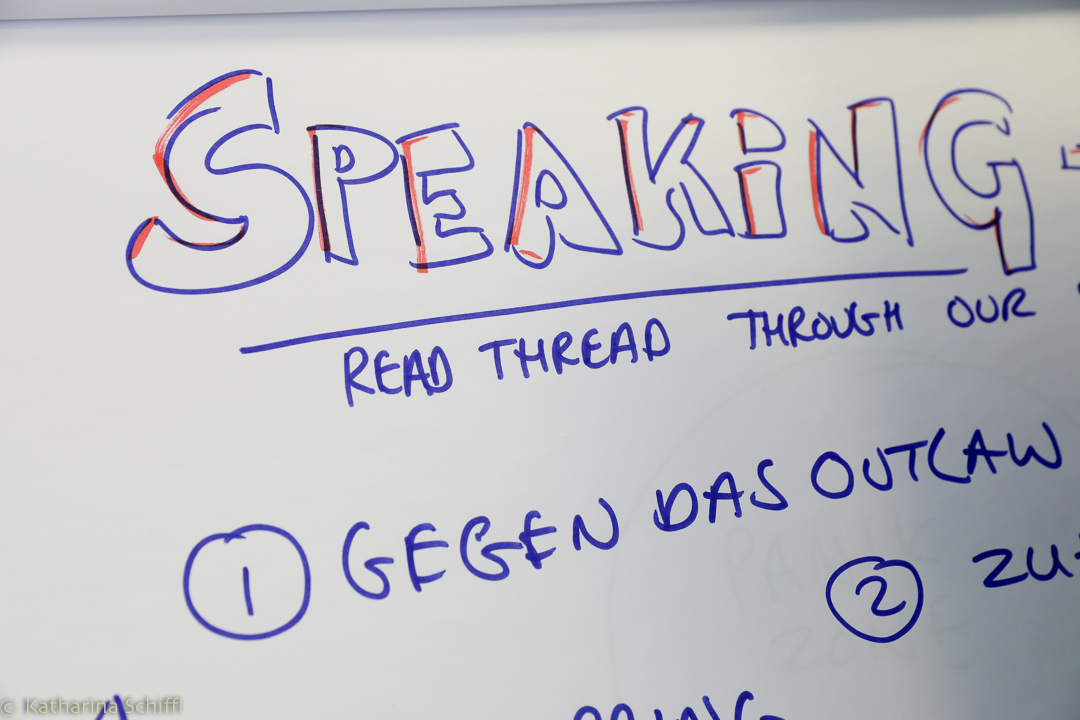 SPEAKING
READ THREAD THROUGH OUR
① GEGEN DAS OUTLAW
②
PANIK
ZONE
© Katharina Schiffl